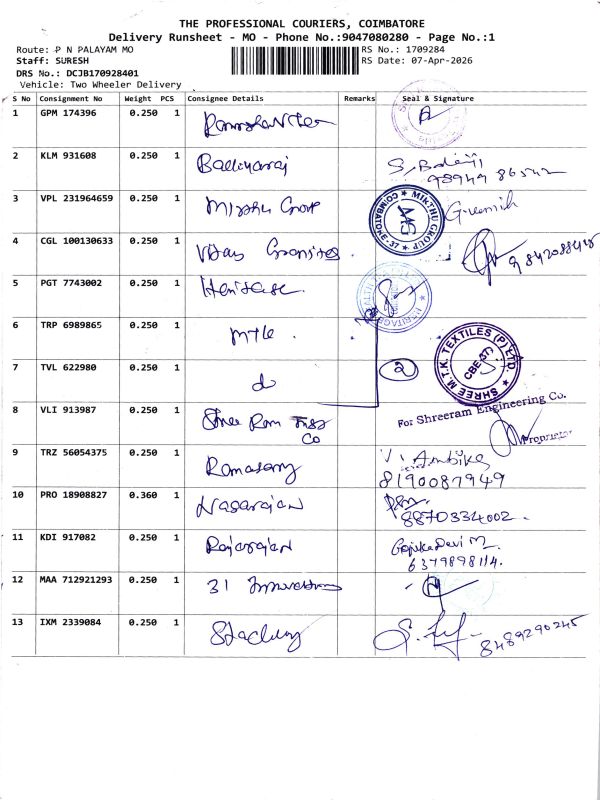 THE PROFESSIONAL COURIERS, COIMBATORE
Delivery Runsheet - MO - Phone No.:9047080280 - Page No.:1
Route: P N PALAYAM MO
RS No.: 1709284
Staff: SURESH
RS Date: 07-Apr-2026
DRS No.: DCJB170928401
Vehicle: Two Wheeler Delivery
S No Consignment No Weight PCS Consignee Details Remarks Seal & Signature
1 GPM 174396 0.250 1
2 KLM 931608 0.250 1
98949 86542
3 VPL 231964659 0.250 1 Group
MIKTHU GROUP
COIMBATORE-37
4 CGL 100130633 0.250 1 Vijay Granites
5 PGT 7743002 0.250 1 Heritage
6 TRP 6989865 0.250 1 MTK
SHREE M.T.K. TEXTILES (P) LTD.
7 TVL 622980 0.250 1 do 2
8 VLI 913987 0.250 1 Shree Ram Engg
Co
For Shreeram Engineering Co.
Proprietor
9 TRZ 56054375 0.250 1 Ramasamy V. Ambika
8190087949
10 PRO 18908827 0.360 1 Nagarajan
8870334002.
11 KDI 917082 0.250 1 Rajarajan Devi M.
6379898114.
12 MAA 712921293 0.250 1 31 Innovations
13 IXM 2339084 0.250 1
8489290245